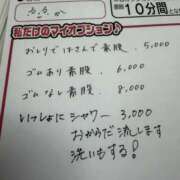 10分間
私だけのマイオプション♪
おしりではさんで素股、5,000
ゴムあり素股、6,000
ゴムなし素股、8,000
いっしょにシャワー 3,000
おからだ流します
洗いもする!